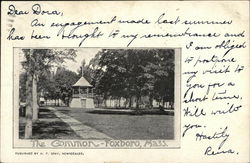 Dear Dora,
An engagement made last summer
has been bought to my remembrance and
I am obliged
to postpone
my visit to
you for a
short time.
Will write
you.
Hastily
The Common - Foxboro, Mass.
PUBLISHED BY NEWSDEALER.